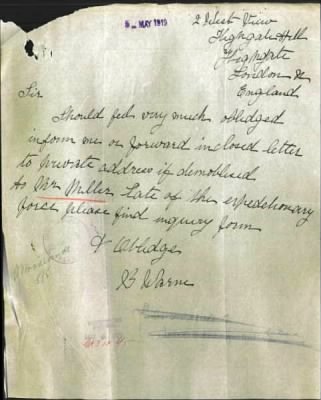 5 - MAY 1919
2 West View
Highgate Hill
Highgate
London N
England
Sir
Should feel very much obliged
inform me or forward inclosed letter
to private address if demobbed
to Mr Miller Late of the expeditionary
force please find inquiry form
& Oblidge
B Warne